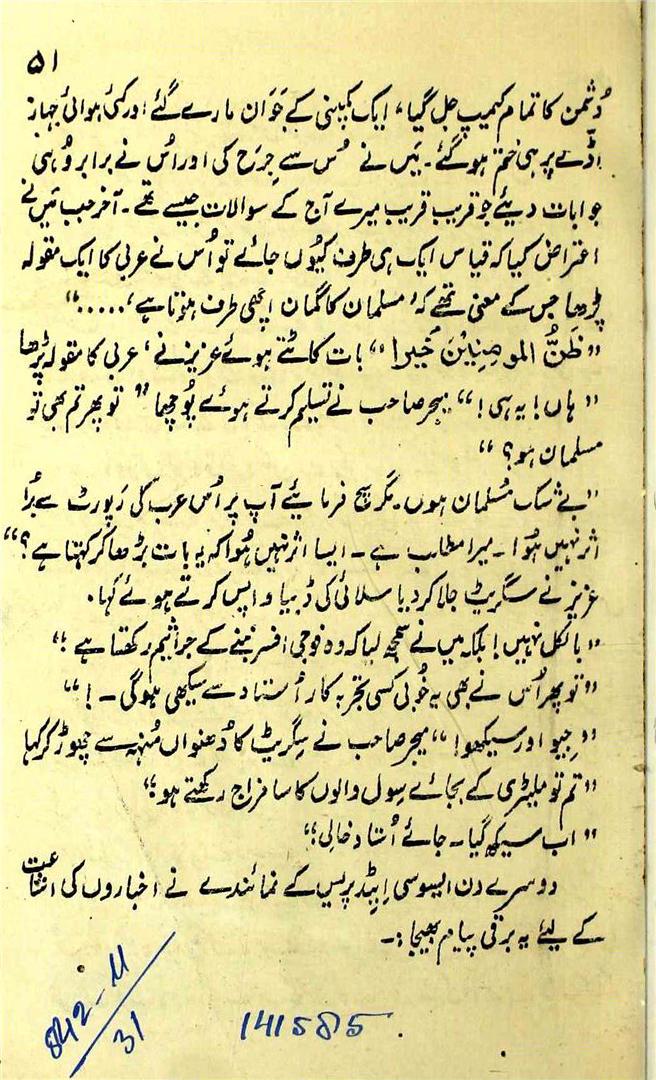 ۵۱
دُشمن کا تمام کیمپ جل گیا، ایک کمپنی کے جَوان مارے گئے اور کئی ہوائی جہاز
اڈّے پر ہی ختم ہو گئے۔ مَیں نے اُس سے جِرَح کی اور اُس نے برابر وُہی
جوابات دیئے جو قریب قریب میرے آج کے سوالات جیسے تھے۔ آخر جب مَیں نے
اعتراض کیا کہ قیاس ایک ہی طرف کیُوں جائے تو اُس نے عربی کا ایک مقولہ
پڑھا جس کے معنی تھے کہ، مسلمان کا گمان اچھی طرف ہوتا ہے، ....."
"ظَنُّ المومِنِیْنَ خَیرا" بات کاٹتے ہوئے عزیز نے، عربی کا مقولہ پڑھا
"ہاں! یہ ہی!" میجر صاحب نے تسلیم کرتے ہوئے پُوچھا "تو پھر تم بھی تو
مسلمان ہو؟"
"بے شک مُسلمان ہوں۔ مگر سچ فرمائیے آپ پر اُس عرب کی رَپورٹ سے بُرا
اثر نہیں ہُوا۔ میرا مطلب ہے۔ ایسا اثر نہیں ہُوا کہ یہ بات بڑھا کر کہتا ہے؟"
عزیز نے سگریٹ جلا کر دیا سلائی کی ڈبیا واپس کرتے ہوئے کہا۔
"بالکل نہیں! بلکہ میں نے سمجھ لیا کہ وہ فوجی افسر بننے کے جراثیم رکھتا ہے؛"
"تو پھر اُس نے بھی یہ خُوبی کسی تجربہ کار اُستاد سے سیکھی ہو گی۔!"
"جِیو اور سیکھو!" میجر صاحب نے سِگریٹ کا دُھنواں مُنہہ سے چھوڑ کر کہا
"تم تو ملیٹری کے بجائے سِول والوں کا سا مزاج رکھتے ہو؛"
"اب سیکھ گیا۔ جائے اُستاد خالی؛"
دوسرے دن ایسوسی ایٹیڈ پریس کے نمائندے نے اخباروں کی اشاعت
کے لیئے یہ برقی پیام بھیجا:۔
842-11
31
141585